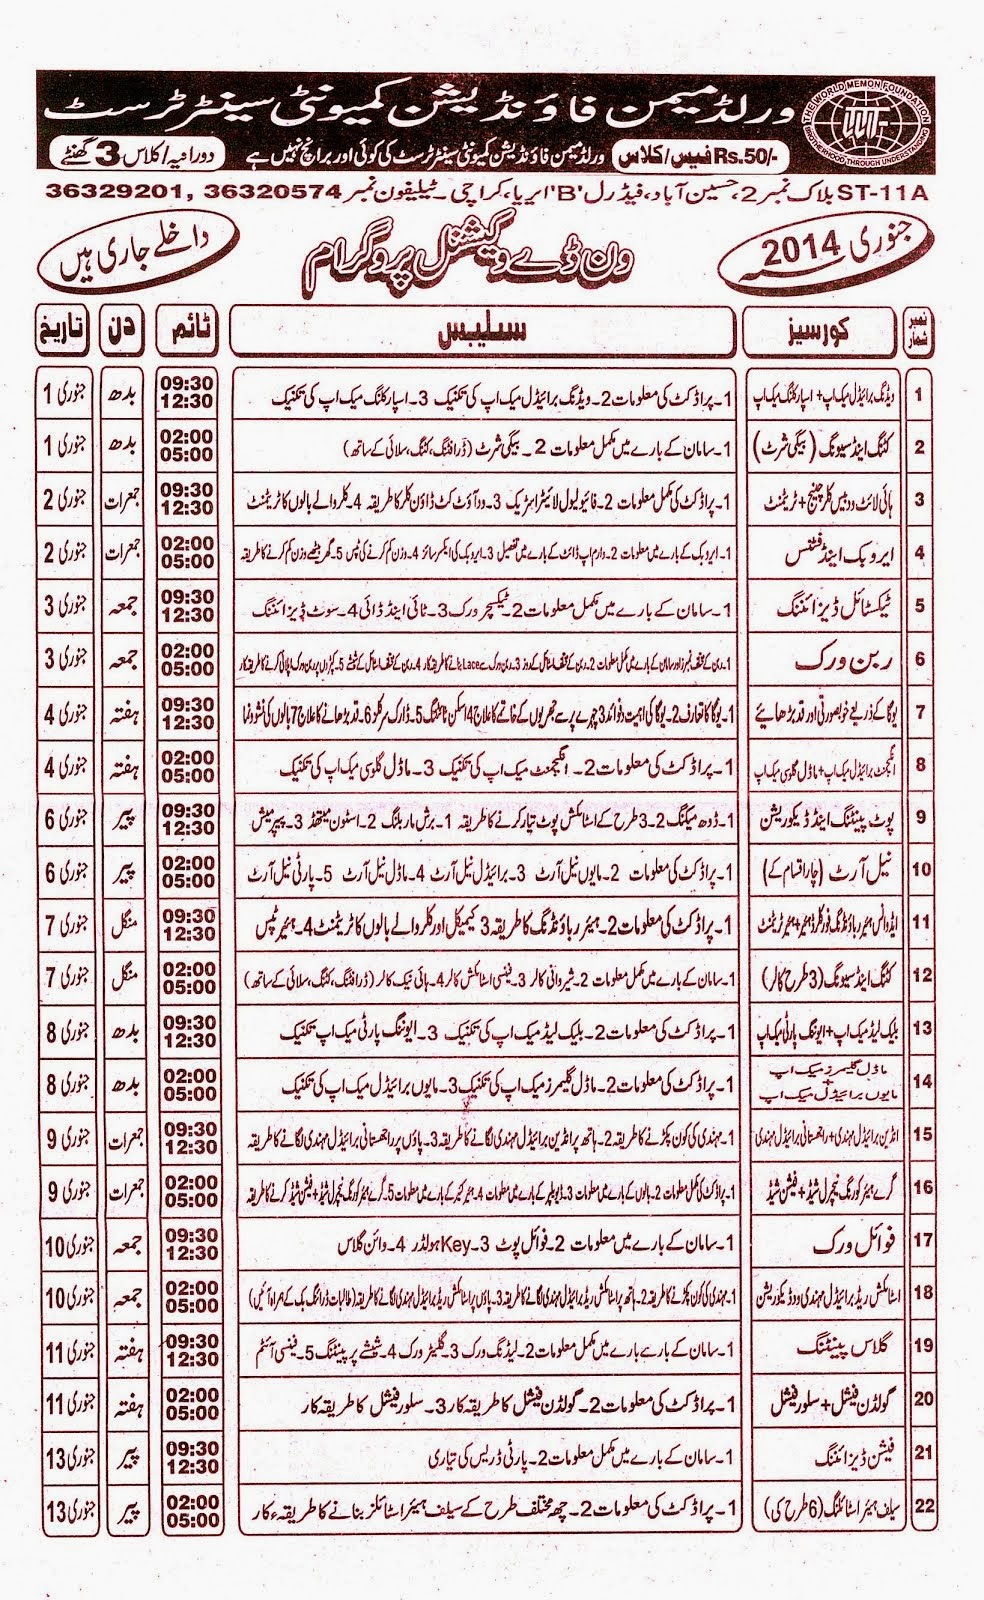 ورلڈ میمن فاؤنڈیشن کمیونٹی سینٹر ٹرسٹ
THE WORLD MEMON FOUNDATION
BROTHERHOOD THROUGH UNDERSTANDING
Rs.50/- فیس/کلاس ورلڈ میمن فاؤنڈیشن کمیونٹی سینٹر ٹرسٹ کی کوئی اور برانچ نہیں ہے دورانیہ/کلاس 3 گھنٹے
ST-11A بلاک نمبر 2، حسین آباد، فیڈرل 'B' ایریا، کراچی ۔ ٹیلیفون نمبر 36320574 ,36329201
جنوری 2014 ون ڈے ووکیشنل پروگرام داخلے جاری ہیں
نمبر شمار کورسیز سلیبس ٹائم دن تاریخ
1 ویڈنگ برائیڈل میک اپ + اسپارکلنگ میک اپ 1۔ پراڈکٹ کی معلومات 2۔ ویڈنگ برائیڈل میک اپ کی تکنیک 3۔ اسپارکلنگ میک اپ کی تکنیک 09:30 12:30 بدھ 1 جنوری
2 کٹنگ اینڈ سیونگ (بیگی شرٹ) 1۔ سامان کے بارے میں مکمل معلومات 2 ۔ بیگی شرٹ (ڈرافٹنگ، کٹنگ، سلائی کے ساتھ) 02:00 05:00 بدھ 1 جنوری
3 ہائی لائٹ ود بیس کلر چینج + ٹریٹمنٹ 1۔ پراڈکٹ کی مکمل معلومات 2۔ فائیو لیول لائیٹر اسٹریک 3۔ ود آؤٹ کٹ ڈاؤن کلر کا طریقہ 4۔ کلر والے بالوں کا ٹریٹمنٹ 09:30 12:30 جمعرات 2 جنوری
4 ایروبک اینڈ فٹنس 1۔ ایروبک کے بارے میں معلومات 2۔ وارم اپ ڈائٹ کے بارے میں تفصیل 3۔ ایروبک کی ایکسرسائز 4۔ وزن کم کرنے کی ٹپس 5۔ گھر بیٹھے وزن کم کرنے کا طریقہ 02:00 05:00 جمعرات 2 جنوری
5 ٹیکسٹائل ڈیزائننگ 1۔ سامان کے بارے میں مکمل معلومات 2۔ ٹیکسچر ورک 3۔ ٹائی اینڈ ڈائی 4۔ سوٹ ڈیزائننگ 09:30 12:30 جمعہ 3 جنوری
6 ربن ورک 02:00 05:00 جمعہ 3 جنوری
7 یوگا کے ذریعے خوبصورتی اور قد بڑھائیے 1۔ یوگا کا تعارف 2۔ یوگا کی اہمیت فوائد 3 چہرے پر سے جھریوں کے خاتمے کا علاج 4 اسکن ٹائٹننگ 5۔ ڈارک سرکلز 6۔ قد بڑھانے کا علاج 7 بالوں کی نشوونما 09:30 12:30 ہفتہ 4 جنوری
8 انگیجمنٹ برائیڈل میک اپ + ماڈل گلوسی میک اپ 1۔ پراڈکٹ کی معلومات 2۔ انگیجمنٹ میک اپ کی تکنیک 3۔ ماڈل گلوسی میک اپ کی تکنیک 02:00 05:00 ہفتہ 4 جنوری
9 پوٹ پینٹنگ اینڈ ڈیکوریشن 1۔ ڈوھ میکنگ 2۔ 3 طرح کے اسٹائلش پوٹ تیار کرنے کا طریقہ 1۔ برش ماربلنگ 2۔ اسٹون میتھڈ 3۔ پیپر میش 09:30 12:30 پیر 6 جنوری
10 نیل آرٹ (چار اقسام کے) 1۔ پراڈکٹ کی معلومات 2۔ مایوں نیل آرٹ 3۔ برائیڈل نیل آرٹ 4۔ ماڈل نیل آرٹ 5۔ پارٹی نیل آرٹ 02:00 05:00 پیر 6 جنوری
11 ایڈوانس ہیئر ریباؤنڈنگ فور کلرڈ ہیئر + ہیئر ٹریٹمنٹ 1۔ پراڈکٹ کی معلومات 2۔ ہیئر ریباؤنڈنگ کا طریقہ 3 کیمیکل اور کلر والے بالوں کا ٹریٹمنٹ 4۔ ہیئر ٹپس 09:30 12:30 منگل 7 جنوری
12 کٹنگ اینڈ سیونگ (3 طرح کالر) 1۔ سامان کے بارے میں مکمل معلومات 2۔ شیروانی کالر 3۔ فینسی اسٹائلش کالر 4۔ ہائی نیک کالر (ڈرافٹنگ، کٹنگ، سلائی کے ساتھ) 02:00 05:00 منگل 7 جنوری
13 بلیک لیڈ میک اپ + ایوننگ پارٹی میک اپ 1۔ پراڈکٹ کی معلومات 2۔ بلیک لیڈ میک اپ کی تکنیک 3۔ ایوننگ پارٹی میک اپ تکنیک 09:30 12:30 بدھ 8 جنوری
14 ماڈل گلیمرز میک اپ + مایوں برائیڈل میک اپ 1۔ پراڈکٹ کی معلومات 2۔ ماڈل گلیمرز میک اپ کی تکنیک 3۔ مایوں برائیڈل میک اپ کی تکنیک 02:00 05:00 بدھ 8 جنوری
15 انڈین برائیڈل مہندی + راجھستانی برائیڈل مہندی 1۔ مہندی کی کون پکڑنے کا طریقہ 2۔ ہاتھ پر انڈین برائیڈل مہندی لگانے کا طریقہ 3۔ پاؤں پر راجھستانی برائیڈل مہندی لگانے کا طریقہ 09:30 12:30 جمعرات 9 جنوری
16 گرے ہیئر کورنگ نیچرل شیڈ + فیشن شیڈ 1۔ پراڈکٹ کی مکمل معلومات 2۔ بالوں کے بارے میں معلومات 3۔ ڈیولپر کے بارے میں معلومات 4۔ ہیئر کلر کے بارے میں معلومات 5۔ گرے ہیئر کورنگ نیچرل شیڈ + فیشن شیڈ کرنے کا طریقہ 02:00 05:00 جمعرات 9 جنوری
17 فوائل ورک 1۔ سامان کے بارے میں معلومات 2۔ فوائل پوٹ 3۔ Key ہولڈر 4۔ وائن گلاس 09:30 12:30 جمعہ 10 جنوری
18 اسٹائلش ریڈ برائیڈل مہندی ود ڈیکوریشن 1۔ مہندی کی کون پکڑنے کا طریقہ 2۔ ہاتھ پر اسٹائلش ریڈ برائیڈل مہندی لگانے کا طریقہ 3۔ پاؤں پر اسٹائلش ریڈ برائیڈل مہندی لگانے کا طریقہ (طالبات ڈرائنگ بک کے ہمراہ آئیں) 02:00 05:00 جمعہ 10 جنوری
19 گلاس پینٹنگ 1۔ سامان کے بارے بارے میں مکمل معلومات 2۔ لیڈنگ ورک 3۔ گلیٹر ورک 4۔ شیشے پر پینٹنگ 5۔ فینسی آئٹم 09:30 12:30 ہفتہ 11 جنوری
20 گولڈن فیشل + سلور فیشل 1۔ پراڈکٹ کی معلومات 2۔ گولڈن فیشل کا طریقہ کار 3۔ سلور فیشل کا طریقہ کار 02:00 05:00 ہفتہ 11 جنوری
21 فیشن ڈیزائننگ 1۔ سامان کے بارے میں مکمل معلومات 2۔ پارٹی ڈریس کی تیاری 09:30 12:30 پیر 13 جنوری
22 سیلف ہیئر اسٹائلنگ (6 طرح کی) 1۔ پراڈکٹ کی معلومات 2۔ چھ مختلف طرح کے سیلف ہیئر اسٹائلز بنانے کا طریقہء کار 02:00 05:00 پیر 13 جنوری